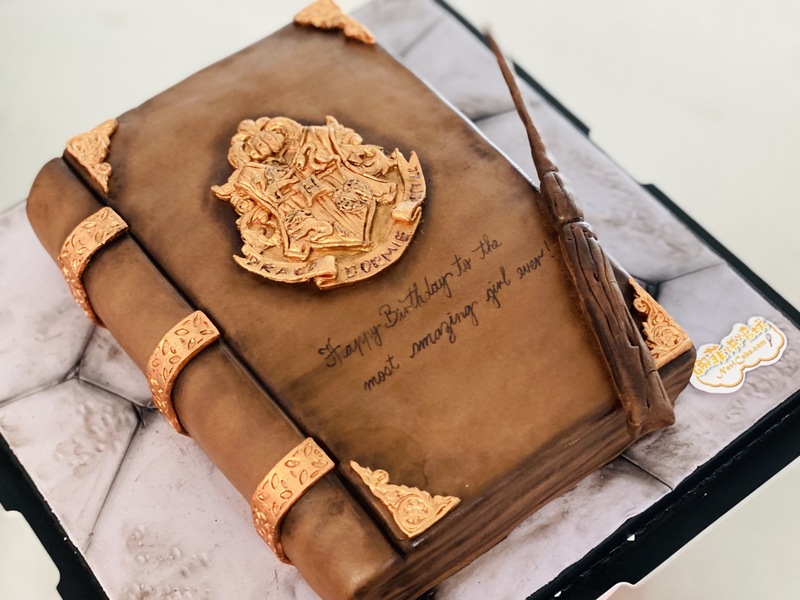 DRACO DORMIE
Happy Birthday to the
most amazing girl ever!